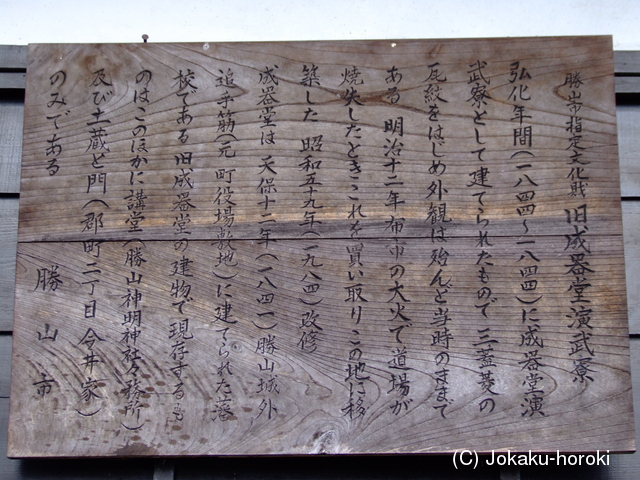 勝山市指定文化財 旧成器堂演武寮
弘化年間(一八四四〜一八四四)に成器堂演
武寮として建てられたもので 三蓋菱の
瓦紋をはじめ外観は殆んど当時のままで
ある 明治十二年布市の大火で道場が
焼失したときこれを買い取りこの地に移
築した 昭和五十九年(一九八四)改修
成器堂は 天保十二年(一八四一)勝山城外
追手筋(元 町役場敷地)に建てられた藩
校である 旧成器堂の建物で現存するも
のはこのほかに講堂(勝山神明神社々務所)
及び土蔵と門(郡町二丁目 今井家)
のみである
勝山市
(C) Jokaku-horoki